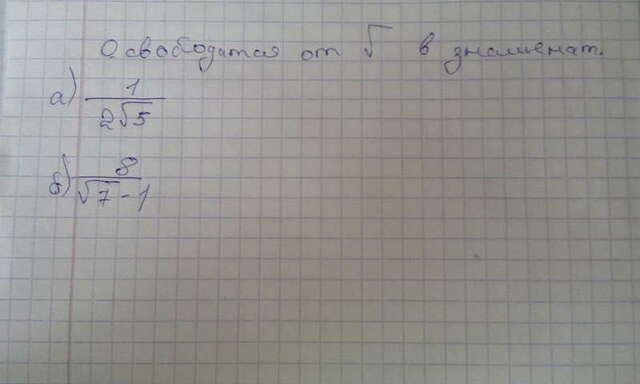 Освабодится от √ в знаменат.
а) 1
2√5
б) 8
√7-1